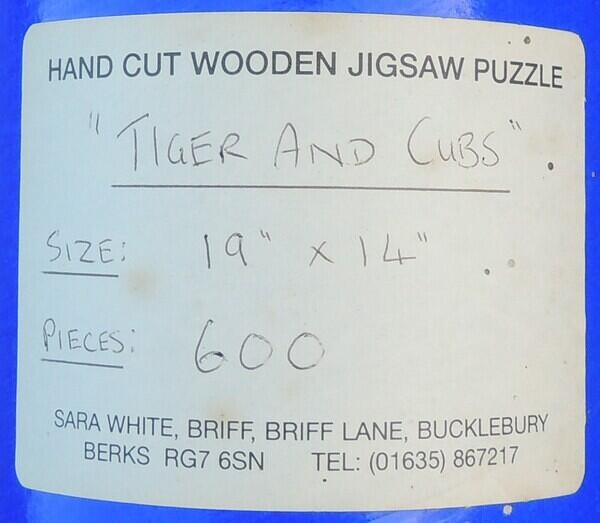 HAND CUT WOODEN JIGSAW PUZZLE
"TIGER AND CUBS".
SIZE: 19" x 14"
PIECES: 600
SARA WHITE, BRIFF, BRIFF LANE, BUCKLEBURY
BERKS RG7 6SN TEL: (01635) 867217